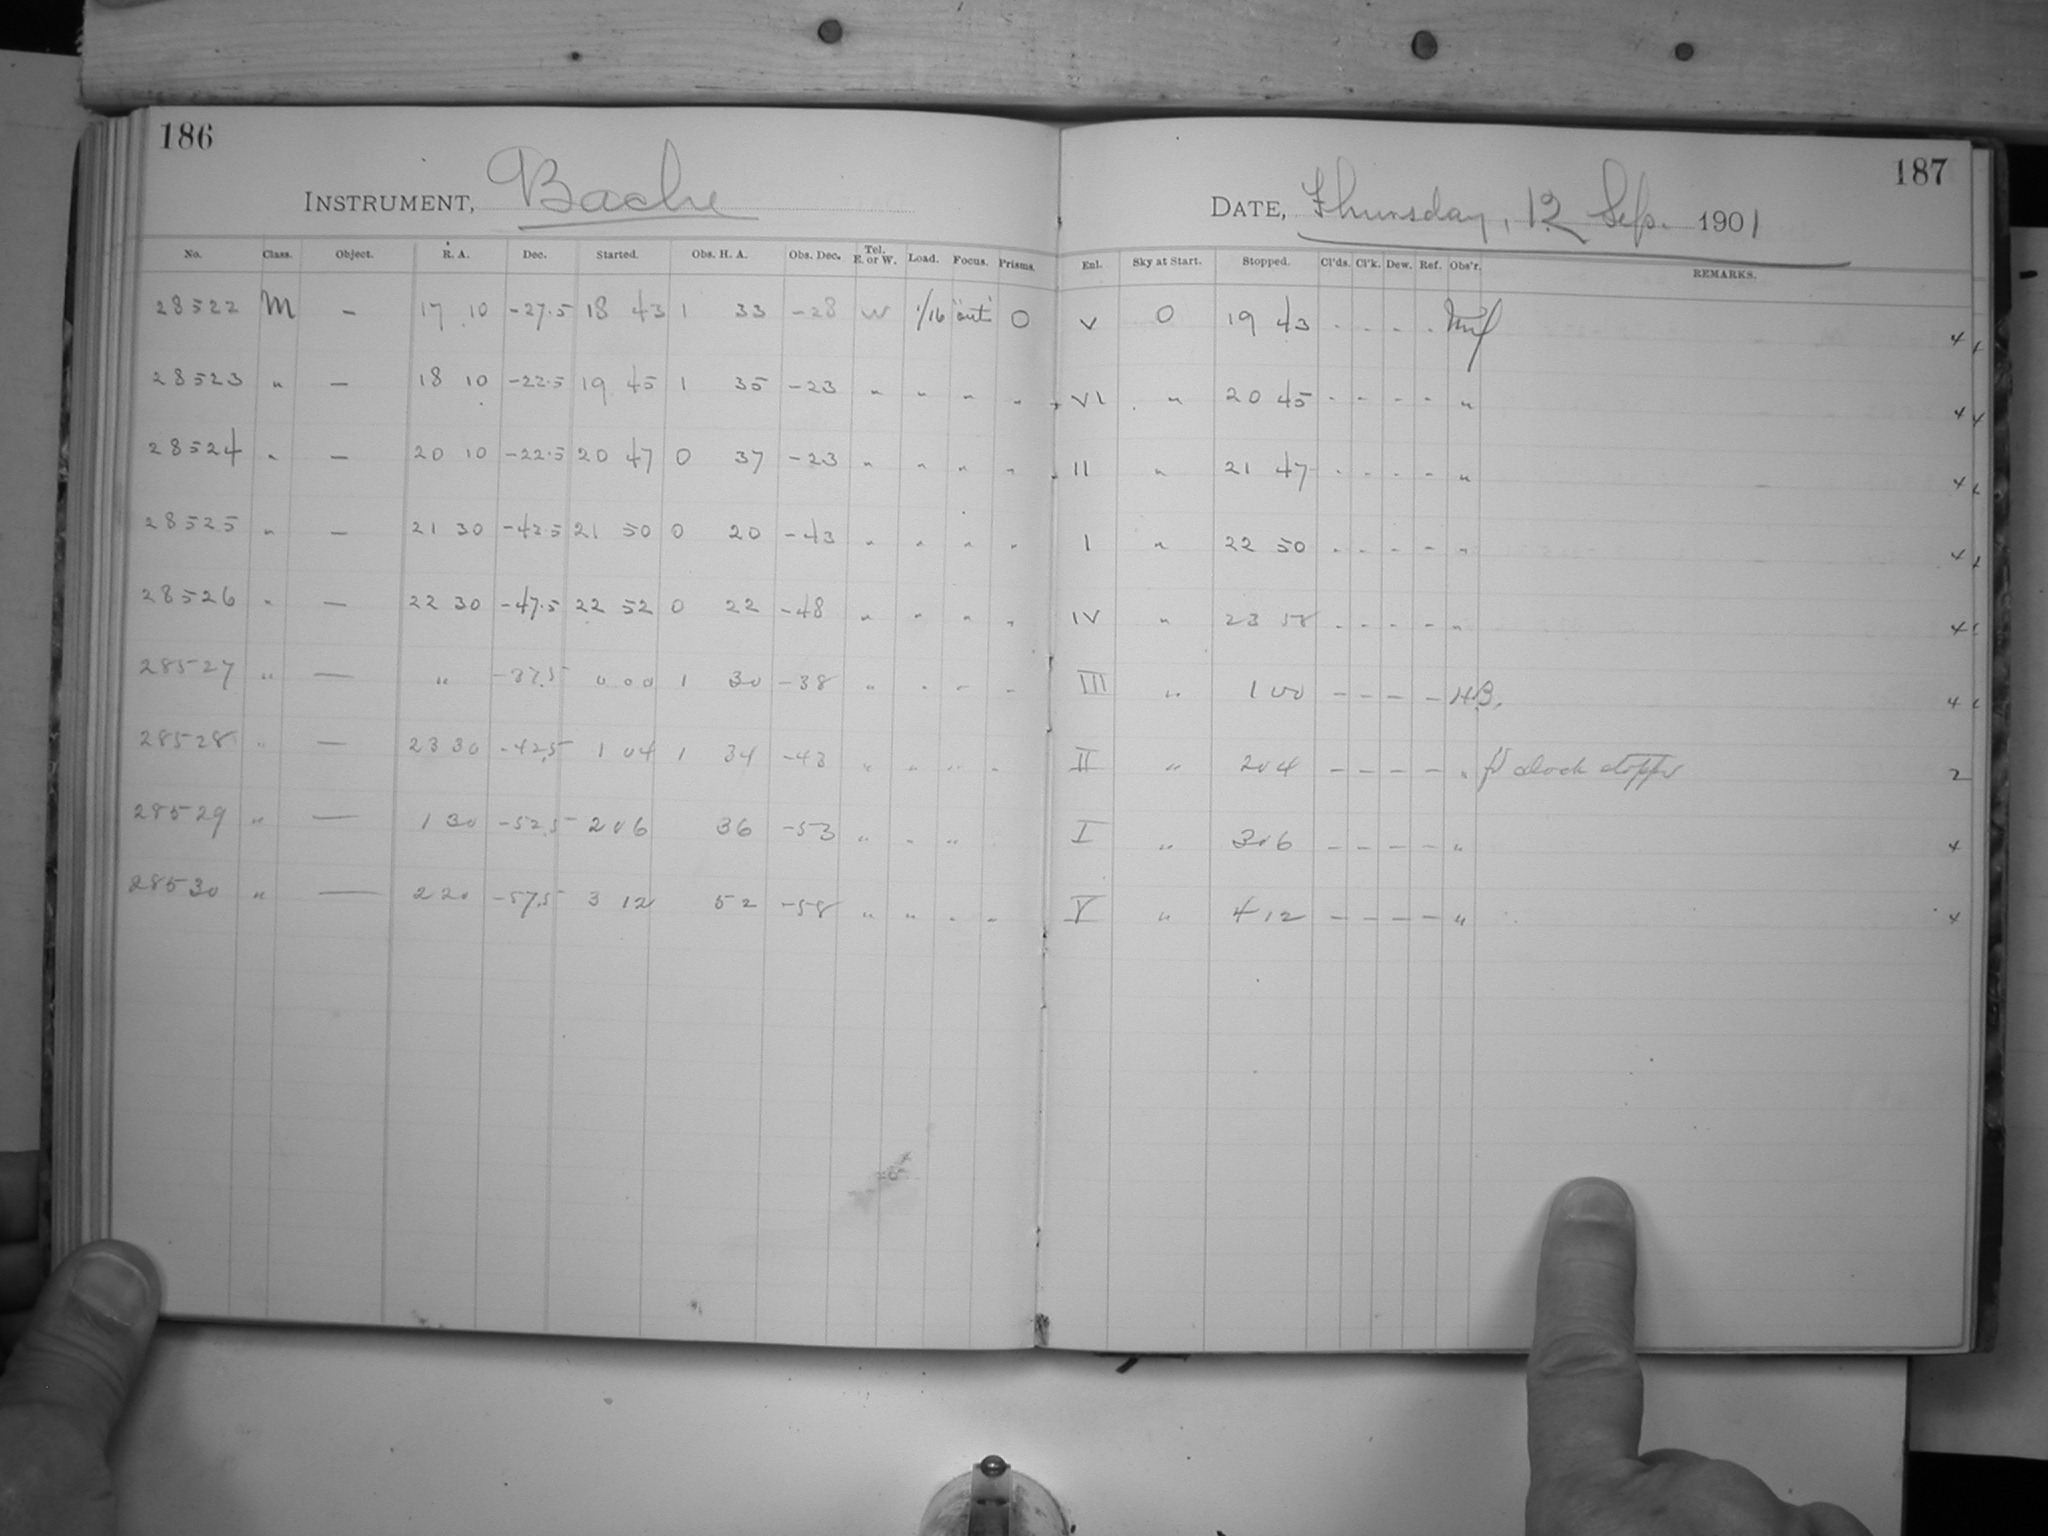 186
INSTRUMENT, Bache
No. Class. Object. R. A. Dec. Started. Obs. H. A. Obs. Dec. Tel. E. or W. Load. Focus. Prisms.
28522 M — 17 10 -27.5 18 43 1 33 -28 W 1/16 "out" O
28523 " — 18 10 -22.5 19 45 1 35 -23 " " " "
28524 " — 20 10 -22.5 20 47 0 37 -23 " " " "
28525 " — 21 30 -42.5 21 50 0 20 -43 " " " "
28526 " — 22 30 -47.5 22 52 0 22 -48 " " " "
28527 " — " -37.5 0 00 1 30 -38 " " " "
28528 " — 23 30 -42.5 1 04 1 34 -43 " " " "
28529 " — 1 30 -52.5 2 06 36 -53 " " "
28530 " — 2 20 -57.5 3 12 52 -58 " " " "
187
DATE, Thursday, 12 Sep. 1901
Enl. Sky at Start. Stopped. Cl'ds. Cl'k. Dew. Ref. Obs'r. REMARKS.
V O 19 43 - - - - 4
VI " 20 45 - - - - " 4
II " 21 47 - - - - " 4
I " 22 50 - - - - " 4
IV " 23 58 - - - - " 4
III " 1 00 - - - - H.B. 4
II " 2 04 - - - - " clock stopped 2
I " 3 06 - - - - " 4
V " 4 12 - - - - " 4